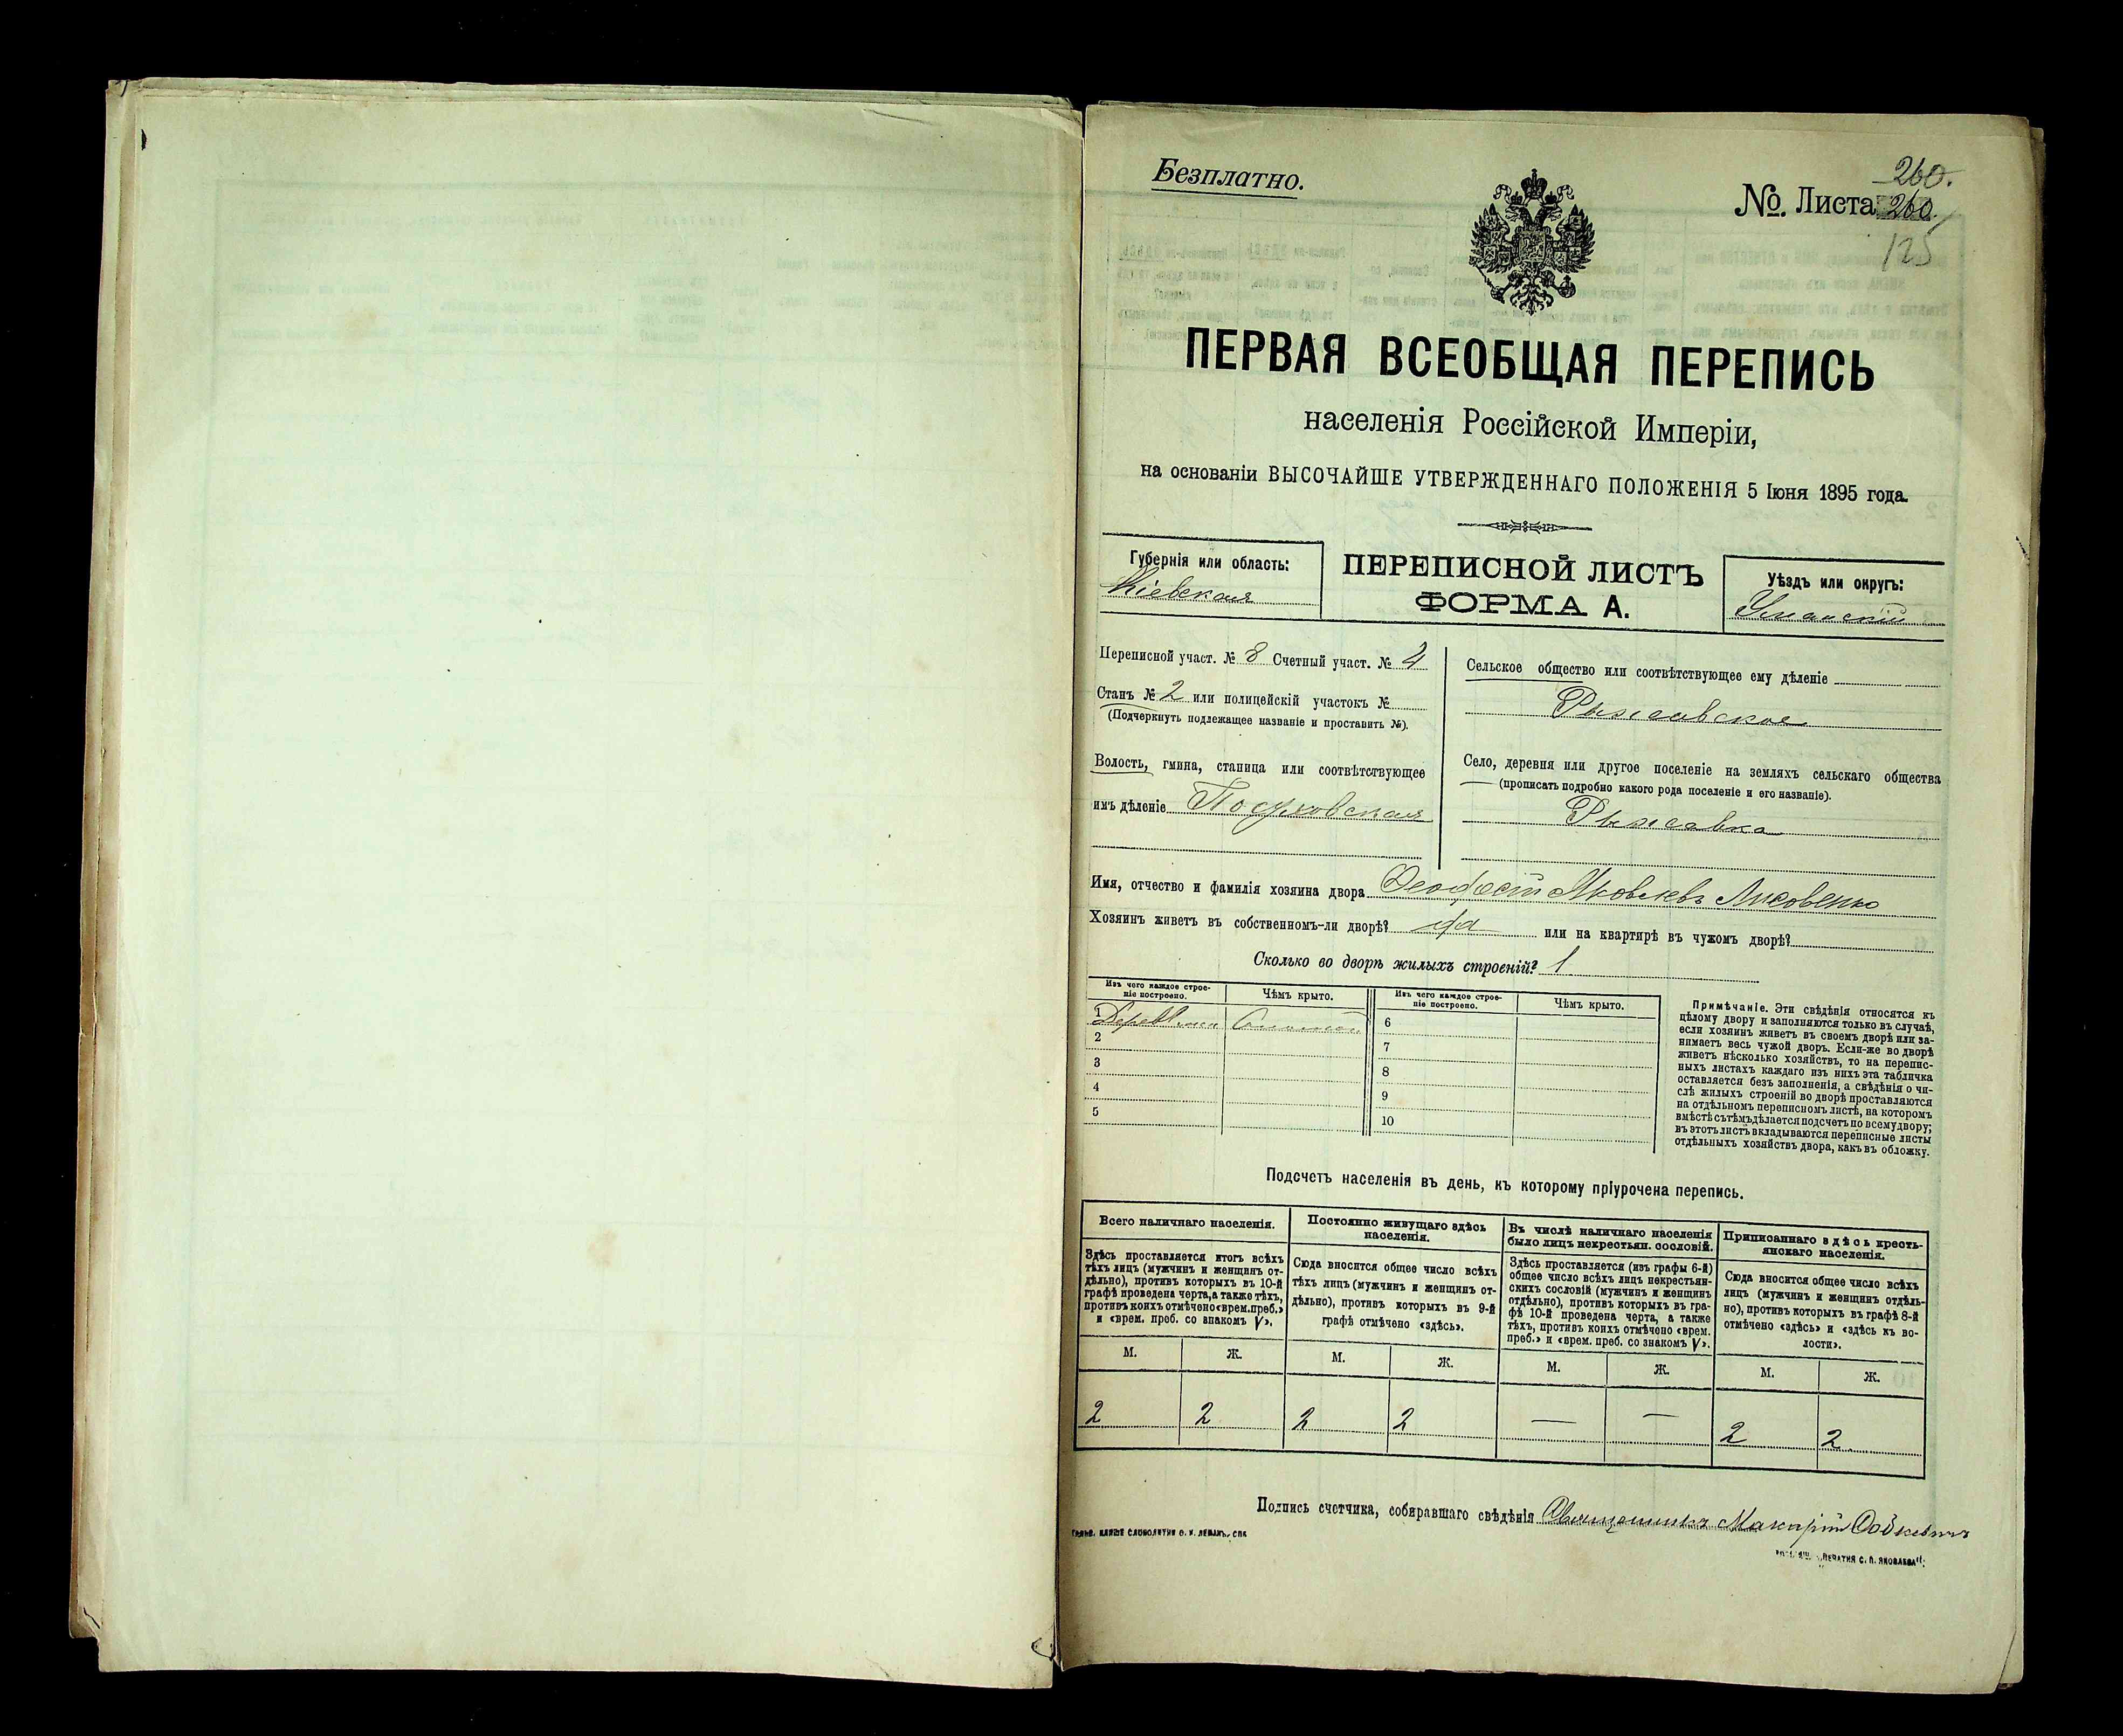 Безплатно.
260.
№. Листа 260.
125
ПЕРВАЯ ВСЕОБЩАЯ ПЕРЕПИСЬ
населенія Россійской Имперіи,
на основаніи ВЫСОЧАЙШЕ УТВЕРЖДЕННАГО ПОЛОЖЕНІЯ 5 Іюня 1895 года.
Губернія или область:
Кіевская
ПЕРЕПИСНОЙ ЛИСТЪ
ФОРМА А.
Уѣздъ или округъ:
Уманскій
Переписной участ. № 8 Счетный участ. № 4
Станъ № 2 или полицейскій участокъ №
(Подчеркнуть подлежащее названіе и проставить №).
Волость, гмина, станица или соотвѣтствующее
имъ дѣленіе
Сельское общество или соотвѣтствующее ему дѣленіе
Рыжавское
Село, деревня или другое поселеніе на земляхъ сельскаго общества
(прописать подробно какого рода поселеніе и его названіе).
Рыжавка
Имя, отчество и фамилія хозяина двора Яковлевъ Лисовенко
Хозяинъ живетъ въ собственномъ-ли дворѣ? да или на квартирѣ въ чужомъ дворѣ?
Сколько во дворѣ жилыхъ строеній? 1
Изъ чего каждое строе-
ніе построено.
Чѣмъ крыто.
Изъ чего каждое строе-
ніе построено.
Чѣмъ крыто.
1
2
3
4
5
6
7
8
9
10
Примѣчаніе. Эти свѣдѣнія относятся къ
цѣлому двору и заполняются только въ случаѣ,
если хозяинъ живетъ въ своемъ дворѣ или за-
нимаетъ весь чужой дворъ. Если-же во дворѣ
живетъ нѣсколько хозяйствъ, то на перепис-
ныхъ листахъ каждаго изъ нихъ эта табличка
оставляется безъ заполненія, а свѣдѣнія о чи-
слѣ жилыхъ строеній во дворѣ проставляются
на отдѣльномъ переписномъ листѣ, на которомъ
вмѣстѣ съ тѣмъ дѣлается подсчетъ по всему двору;
въ этотъ листъ вкладываются переписные листы
отдѣльныхъ хозяйствъ двора, какъ въ обложку.
Подсчетъ населенія въ день, къ которому пріурочена перепись.
Всего наличнаго населенія.
Здѣсь проставляется итогъ всѣхъ
тѣхъ лицъ (мужчинъ и женщинъ от-
дѣльно), противъ которыхъ въ 10-й
графѣ проведена черта, а также тѣхъ,
противъ коихъ отмѣчено «врем. преб.»
и «врем. преб. со знакомъ V».
Постоянно живущаго здѣсь
населенія.
Сюда вносится общее число всѣхъ
тѣхъ лицъ (мужчинъ и женщинъ от-
дѣльно), противъ которыхъ въ 9-й
графѣ отмѣчено «здѣсь».
Въ числѣ наличнаго населенія
было лицъ некрестьян. сословій.
Здѣсь проставляется (изъ графы 6-й)
общее число всѣхъ лицъ некрестьян-
скихъ сословій (мужчинъ и женщинъ
отдѣльно), противъ которыхъ въ гра-
фѣ 10-й проведена черта, а также
тѣхъ, противъ коихъ отмѣчено «врем.
преб.» и «врем. преб. со знакомъ V».
Приписаннаго здѣсь кресть-
янскаго населенія.
Сюда вносится общее число всѣхъ
лицъ (мужчинъ и женщинъ отдѣль-
но), противъ которыхъ въ графѣ 8-й
отмѣчено «здѣсь» и «здѣсь къ во-
лости».
М. Ж. М. Ж. М. Ж. М. Ж.
2 2 2 2 — — 2 2
Подпись счетчика, собиравшаго свѣдѣнія Священникъ Макарій